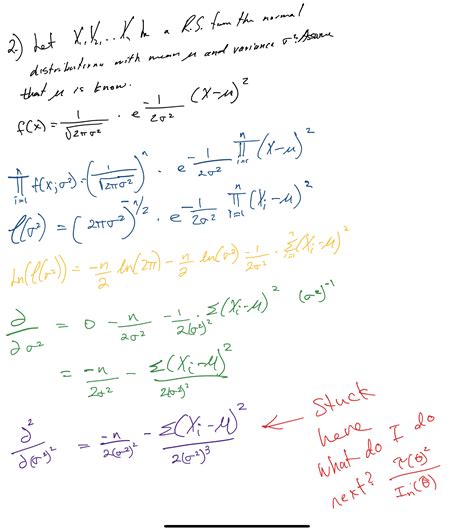 2.) Let X₁, X₂, ... Xₙ be a R.S. from the normal
distributions with mean μ and variance σ². Assume
that μ is know.
f(x) = 1/√(2πσ²) · e^(-1/(2σ²) (X-μ)²)
∏ᵢ₌₁ⁿ f(xᵢ;σ²) = (1/√(2πσ²))ⁿ · e^(-1/(2σ²) ∏ᵢ₌₁ⁿ (X-μ)²)
ℓ(σ²) = (2πσ²)^(-n/2) · e^(-1/(2σ²) ∏ᵢ₌₁ⁿ (Xᵢ-μ)²)
Ln(ℓ(σ²)) = -n/2 ln(2π) - n/2 ln(σ²) -1/(2σ²) · Σᵢ₌₁ⁿ (Xᵢ-μ)²
∂/∂σ² = 0 - n/(2σ²) - -1/(2(σ²)²) · Σ(Xᵢ-μ)² (σ²)⁻¹
= -n/(2σ²) - Σ(Xᵢ-μ)²/(2(σ²)²)
∂²/∂(σ²)² = -n/(2(σ²)²) - Σ(Xᵢ-μ)²/(2(σ²)³)
← Stuck
here
what do I do
next? τ(θ)²/Iₙ(θ)